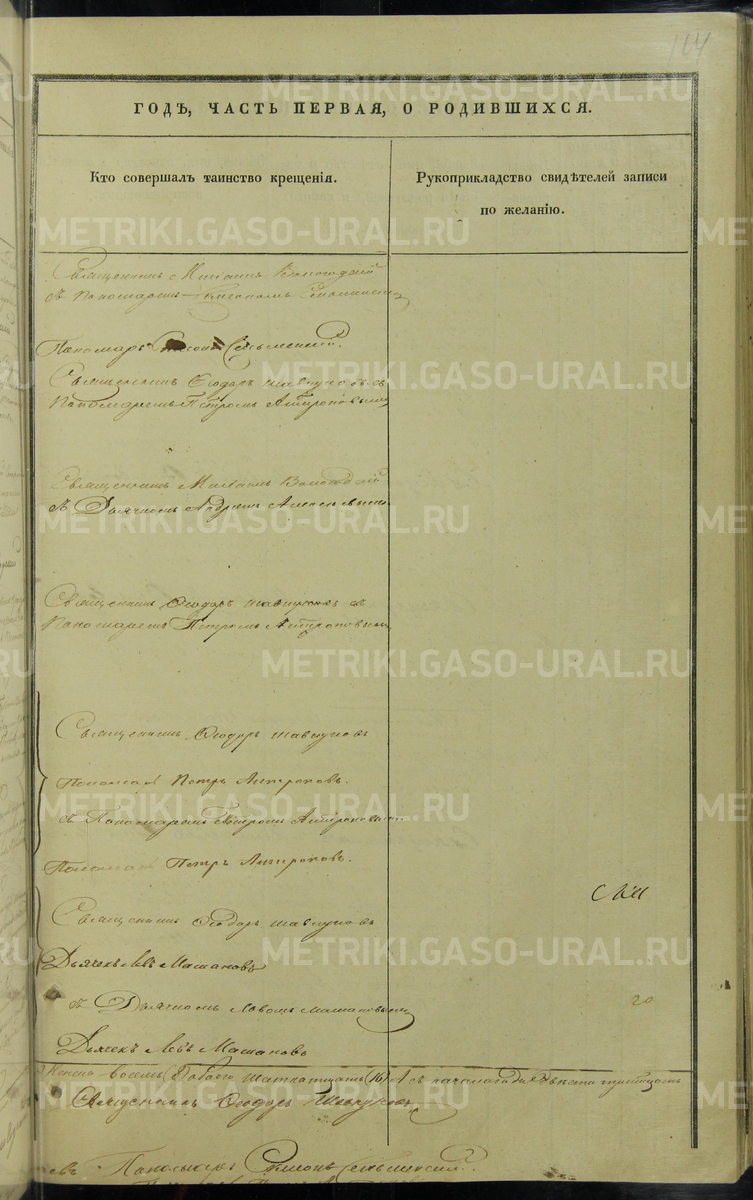 114
ГОДЪ, ЧАСТЬ ПЕРВАЯ, О РОДИВШИХСЯ.
Кто совершалъ таинство крещенія.
Рукоприкладство свидѣтелей записи
по желанію.
Священникъ Михаилъ Вологодскій
съ Пономаремъ
Пономарь Симеонъ
Священникъ Ѳеодоръ Шавкуновъ съ
Пономаремъ Петромъ Антроповымъ
Священникъ Михаилъ Вологодскій
съ Дьячкомъ Андреемъ
Священникъ Ѳеодоръ Шавкуновъ съ
Пономаремъ Петромъ Антроповымъ
Священникъ Ѳеодоръ Шавкуновъ
Пономарь Петръ Антроповъ.
съ Пономаремъ Петромъ Антроповымъ.
Пономарь Петръ Антроповъ.
Священникъ Ѳеодоръ Шавкуновъ
Дьячекъ Левъ Машановъ
съ Дьячкомъ Львомъ Машановымъ
20
Дьячекъ Левъ Машановъ
восемь (8) обоего (16) А съ начала года
Священникъ Ѳеодоръ Шавкуновъ
Пономарь Симеонъ
METRIKI.GASO-URAL.RU